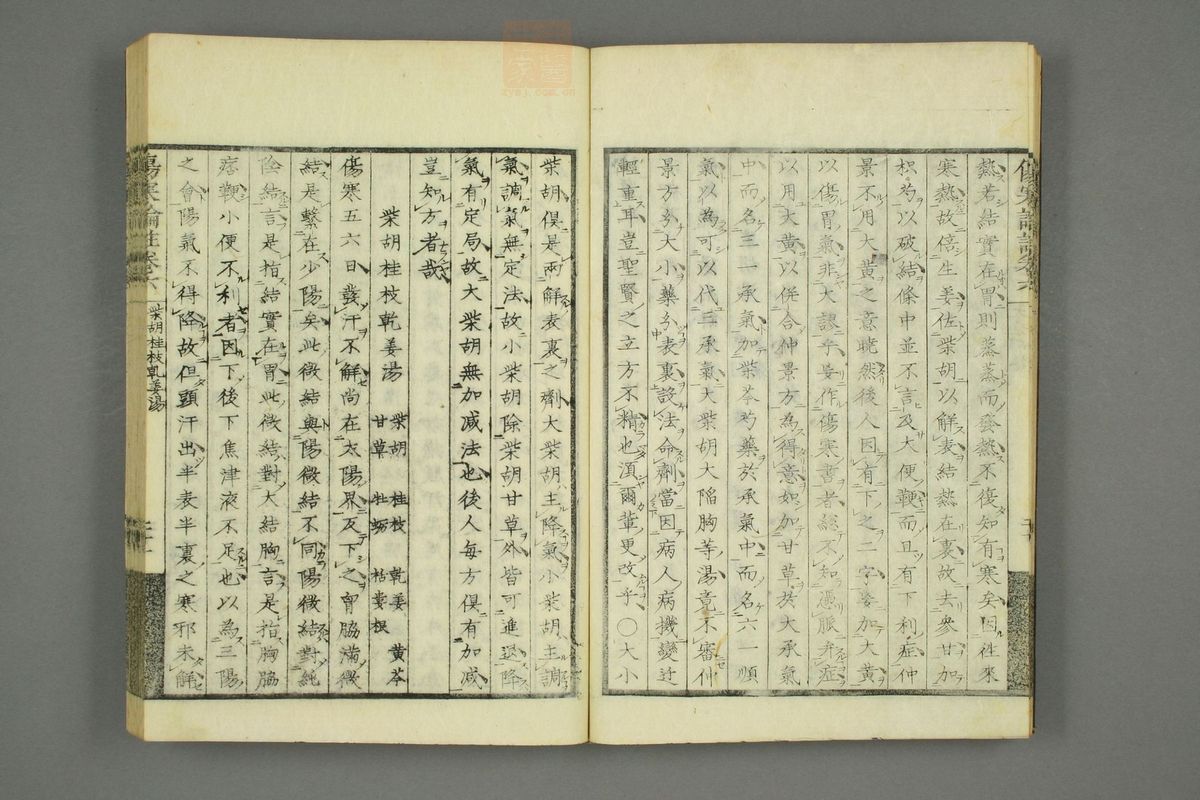 熱若結實在胃則蒸蒸而發熱不傷知有寒矣因往來
寒熱故倍生姜佐柴胡以解表結熱在裏故去參甘加
枳芍以破結條中並不言及大便鞕而且有下利症仲
景不用大黄之意曉然後人因有下之二字妄加大黄
以傷胃氣非大謬乎妄作傷寒書者總不知憑脈弁症
以用大黄以併合仲景方為得意如加甘草於大承氣
中而名三一承氣加柴芩芍藥於承氣中而名六一順
氣以為可以代三承氣大柴胡大陷胸等湯竟不審仲
景方分大小藥分表裏設法命劑當因病人病機變迁
輕重耳豈聖賢之立方不精也湏爾輩更改乎〇大小
柴胡俱是兩解表裏之劑大柴胡主降氣小柴胡主調
氣調氣無定法故小柴胡除柴胡甘草外皆可進退降
氣有定局故大柴胡無加減法也後人每方俱有加減
豈知方者哉
柴胡桂枝乾姜湯 柴胡 桂枝 乾姜 黄芩
甘草 牡蛎 栝蔞根
傷寒五六日發汗不解尚在太陽界反下之胷脇滿微
結是繫在少陽矣此微結與陽微結不同陽微結對純
陰結言是指結實在胃此微結對大結胸言是指胸脇
痞鞕小便不利者因下後下焦津液不足也以為三陽
之會陽氣不得降故但頭汗出半表半裏之寒邪未解
傷寒論註卷六
柴胡桂枝乾姜湯